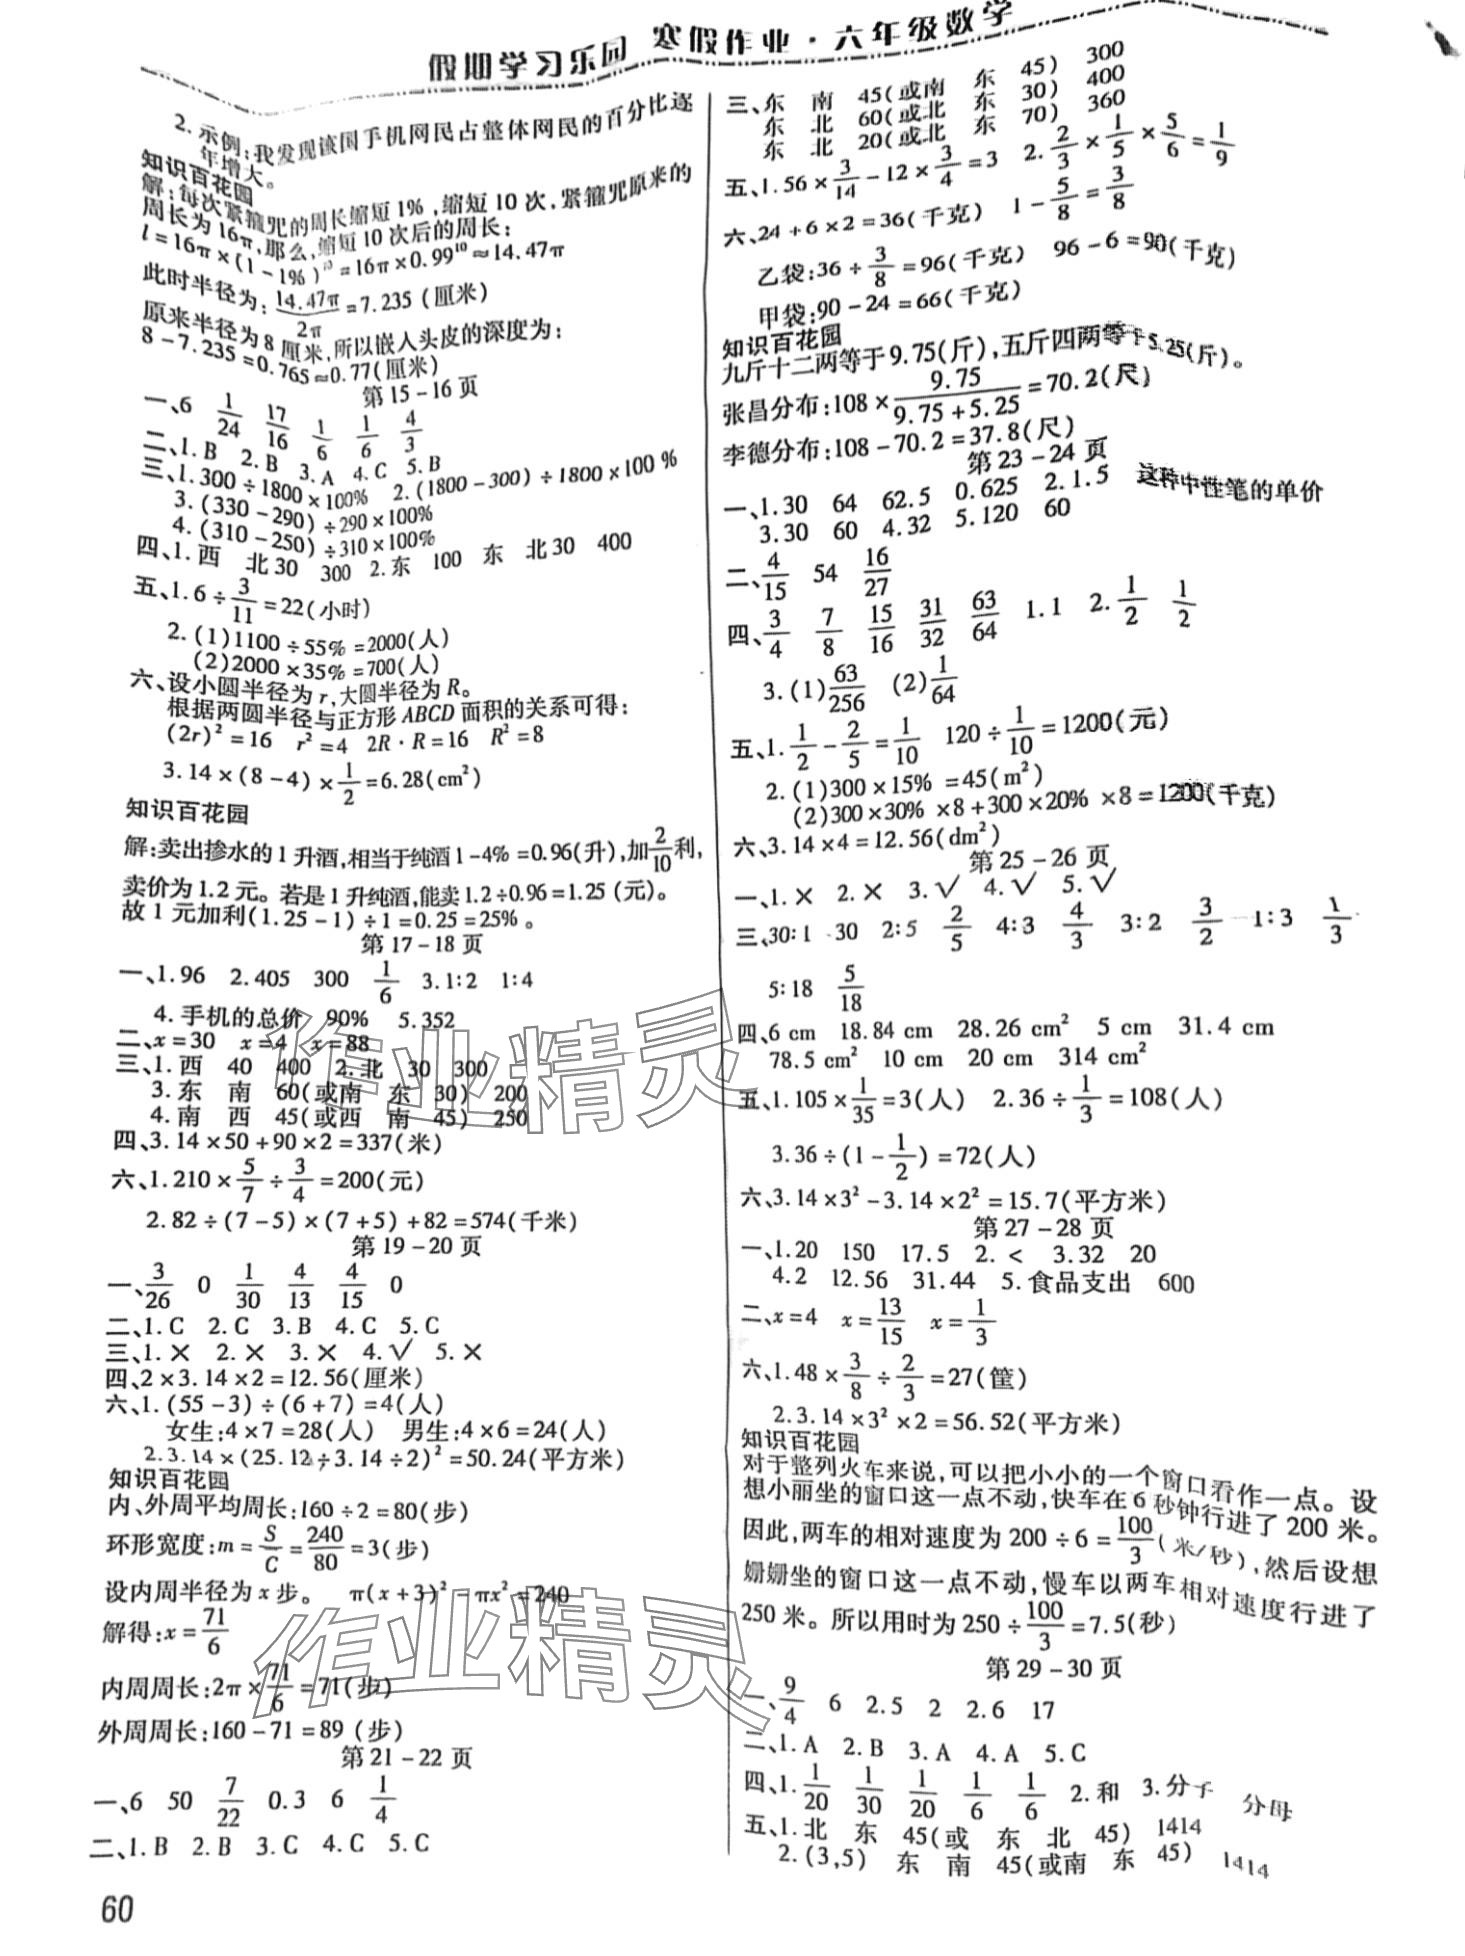 假期学习乐园 寒假作业·六年级数学
2. 示例:我发现该国手机网民占整体网民的百分比逐
年增大。
知识百花园
解:每次紧箍咒的周长缩短1%,缩短10次,紧箍咒原来的
周长为16π,那么,缩短10次后的周长:
l=16π×(1-1%)^10=16π×0.99^10≈14.47π
此时半径为:14.47π/2π=7.235(厘米)
原来半径为8厘米,所以嵌入头皮的深度为:
8-7.235=0.765≈0.77(厘米)
第15-16页
一、6 1/24 17/16 1/6 1/6 4/3
二、1.B 2.B 3.A 4.C 5.B
三、1.300÷1800×100% 2.(1800-300)÷1800×100%
3.(330-290)÷290×100%
4.(310-250)÷310×100%
四、1.西 北30 300 2.东 100 东 北30 400
五、1.6÷3/11=22(小时)
2.(1)1100÷55%=2000(人)
(2)2000×35%=700(人)
六、设小圆半径为r,大圆半径为R。
根据两圆半径与正方形ABCD面积的关系可得:
(2r)²=16 r²=4 2R·R=16 R²=8
3.14×(8-4)×1/2=6.28(cm²)
知识百花园
解:卖出掺水的1升酒,相当于纯酒1-4%=0.96(升),加2/10利,
卖价为1.2元。若是1升纯酒,能卖1.2÷0.96=1.25(元)。
故1元加利(1.25-1)÷1=0.25=25%。
第17-18页
一、1.96 2.405 300 1/6 3.1:2 1:4
4.手机的总价 90% 5.352
二、x=30 x=4 x=88
三、1.西 40 400 2.北 30 300
3.东 南 60(或南 东 30) 200
4.南 西 45(或西 南 45) 250
四、3.14×50+90×2=337(米)
六、1.210×5/7÷3/4=200(元)
2.82÷(7-5)×(7+5)+82=574(千米)
第19-20页
一、3/26 0 1/30 4/13 4/15 0
二、1.C 2.C 3.B 4.C 5.C
三、1.× 2.× 3.× 4.√ 5.×
四、2×3.14×2=12.56(厘米)
六、1.(55-3)÷(6+7)=4(人)
女生:4×7=28(人) 男生:4×6=24(人)
2.3.14×(25.12÷3.14÷2)²=50.24(平方米)
知识百花园
内、外周平均周长:160÷2=80(步)
环形宽度:m=S/C=240/80=3(步)
设内周半径为x步。 π(x+3)²-πx²=240
解得:x=71/6
内周周长:2π×71/6=71(步)
外周周长:160-71=89(步)
第21-22页
一、6 50 7/22 0.3 6 1/4
二、1.B 2.B 3.C 4.C 5.C
60
三、东 南 45(或南 东 45) 300
东 北 60(或北 东 30) 400
东 北 20(或北 东 70) 360
五、1.56×3/14-12×3/4=3 2.2/3×1/5×5/6=1/9
六、24+6×2=36(千克) 1-5/8=3/8
乙袋:36÷3/8=96(千克) 96-6=90(千克)
甲袋:90-24=66(千克)
知识百花园
九斤十二两等于9.75(斤),五斤四两等于5.25(斤)。
张昌分布:108×9.75/(9.75+5.25)=70.2(尺)
李德分布:108-70.2=37.8(尺)
第23-24页
一、1.30 64 62.5 0.625 2.1.5 这种中性笔的单价
3.30 60 4.32 5.120 60
二、4/15 54 16/27
四、3/4 7/8 15/16 31/32 63/64 1.1 2.1/2 1/2
3.(1)63/256 (2)1/64
五、1.1/2-2/5=1/10 120÷1/10=1200(元)
2.(1)300×15%=45(m²)
(2)300×30%×8+300×20%×8=1200(千克)
六、3.14×4=12.56(dm²)
第25-26页
一、1.× 2.× 3.√ 4.√ 5.√
三、30:1 30 2:5 2/5 4:3 4/3 3:2 3/2 1:3 1/3
5:18 5/18
四、6 cm 18.84 cm 28.26 cm² 5 cm 31.4 cm
78.5 cm² 10 cm 20 cm 314 cm²
五、1.105×1/35=3(人) 2.36÷1/3=108(人)
3.36÷(1-1/2)=72(人)
六、3.14×3²-3.14×2²=15.7(平方米)
第27-28页
一、1.20 150 17.5 2.< 3.32 20
4.2 12.56 31.44 5.食品支出 600
二、x=4 x=13/15 x=1/3
六、1.48×3/8÷2/3=27(筐)
2.3.14×3²×2=56.52(平方米)
知识百花园
对于整列火车来说,可以把小小的一个窗口看作一点。设
想小丽坐的窗口这一点不动,快车在6秒钟行进了200米。
因此,两车的相对速度为200÷6=100/3(米/秒),然后设想
姗姗坐的窗口这一点不动,慢车以两车相对速度行进了
250米。所以用时为250÷100/3=7.5(秒)
第29-30页
一、9/4 6 2.5 2 2.6 17
二、1.A 2.B 3.A 4.A 5.C
四、1.1/20 1/30 1/20 1/6 1/6 2.和 3.分子 分母
五、1.北 东 45(或 东 北 45) 1414
2.(3,5) 东 南 45(或南 东 45) 1414
作业精灵
作业精灵